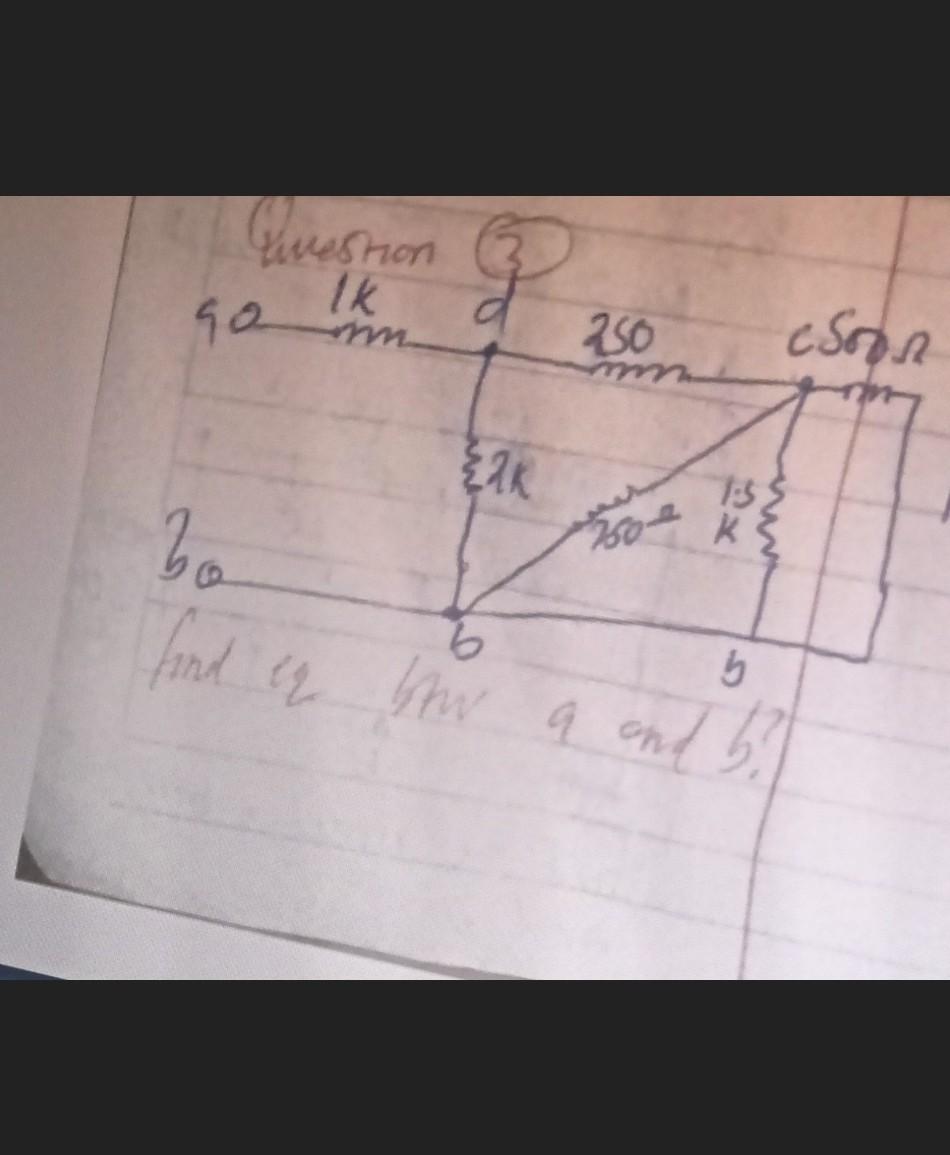 Question 3
1K d 250 c 500Ω
a
2K 1.5
750Ω K
b
b b
find eq btw a and b?